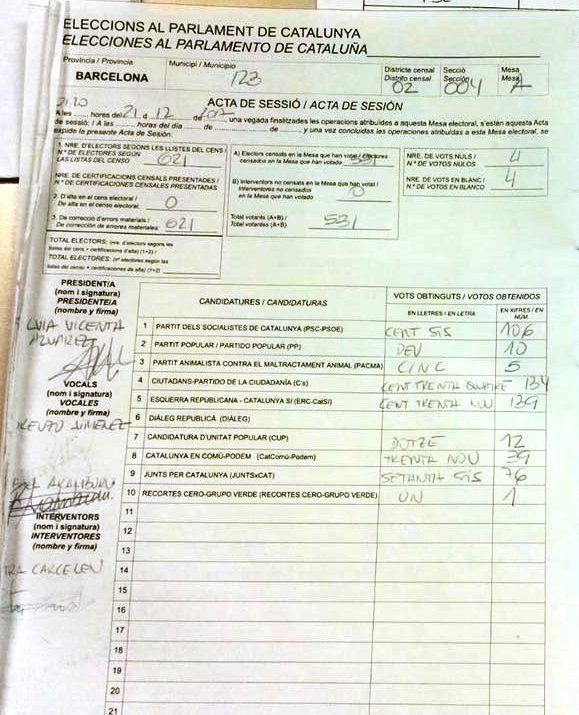 ELECCIONS AL PARLAMENT DE CATALUNYA
ELECCIONES AL PARLAMENTO DE CATALUÑA
Província / Provincia
Municipi / Municipio
Districte censal
Distrito censal
Secció
Sección
Mesa
Mesa
BARCELONA
123
02
004
A
ACTA DE SESSIÓ / ACTA DE SESIÓN
A les hores del 21 a 12 de una vegada finalitzades les operacions atribuïdes a aquesta Mesa electoral, s'estén aquesta Acta
de sessió; / A las horas del día de de y una vez concluidas las operaciones atribuidas a esta Mesa electoral, se
expide la presente Acta de Sesión.
1. NRE. D'ELECTORS SEGONS LES LLISTES DEL CENS /
N.º DE ELECTORES SEGÚN
LAS LISTAS DEL CENSO 621
NRE. DE CERTIFICACIONS CENSALS PRESENTADES /
N.º DE CERTIFICACIONES CENSALES PRESENTADAS
2. D'alta en el cens electoral /
De alta en el censo electoral 0
3. De correcció d'errors materials /
De corrección de errores materiales 621
TOTAL ELECTORS: (nre. d'electors segons les
llistes del cens + certificacions d'alta) (1+2) /
TOTAL ELECTORES: (nº electores según las
listas del censo + certificaciones de alta) (1+2)
A) Electors censats en la Mesa que han votat / Electores
censados en la Mesa que han votado 531
B) Interventors no censats en la Mesa que han votat /
Interventores no censados
en la Mesa que han votado 0
Total votants (A+B) /
Total votantes (A+B) 531
NRE. DE VOTS NULS /
N.º DE VOTOS NULOS 4
NRE. DE VOTS EN BLANC /
N.º DE VOTOS EN BLANCO 4
PRESIDENT/A
(nom i signatura)
PRESIDENTE/A
(nombre y firma)
VICENTA
ALVAREZ
VOCALS
(nom i signatura)
VOCALES
(nombre y firma)
JIMENEZ
ARAMBURU
INTERVENTORS
(nom i signatura)
INTERVENTORES
(nombre y firma)
CARCELEN
CANDIDATURES / CANDIDATURAS
VOTS OBTINGUTS / VOTOS OBTENIDOS
EN LLETRES / EN LETRA
EN XIFRES / EN NÚM.
1 PARTIT DELS SOCIALISTES DE CATALUNYA (PSC-PSOE) CENT SIS 106
2 PARTIT POPULAR / PARTIDO POPULAR (PP) DEU 10
3 PARTIT ANIMALISTA CONTRA EL MALTRACTAMENT ANIMAL (PACMA) CINC 5
4 CIUTADANS-PARTIDO DE LA CIUDADANÍA (C's) CENT TRENTA QUATRE 134
5 ESQUERRA REPUBLICANA - CATALUNYA SÍ (ERC-CatSí) CENT TRENTA NOU 139
6 DIÀLEG REPUBLICÀ (DIÀLEG)
7 CANDIDATURA D'UNITAT POPULAR (CUP) DOTZE 12
8 CATALUNYA EN COMÚ-PODEM (CatComú-Podem) TRENTA NOU 39
9 JUNTS PER CATALUNYA (JUNTSxCAT) SETANTA SIS 76
10 RECORTES CERO-GRUPO VERDE (RECORTES CERO-GRUPO VERDE) UN 1
11
12
13
14
15
16
17
18
19
20
21